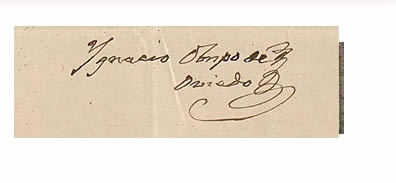 Ygnacio Obispo de
Oviedo